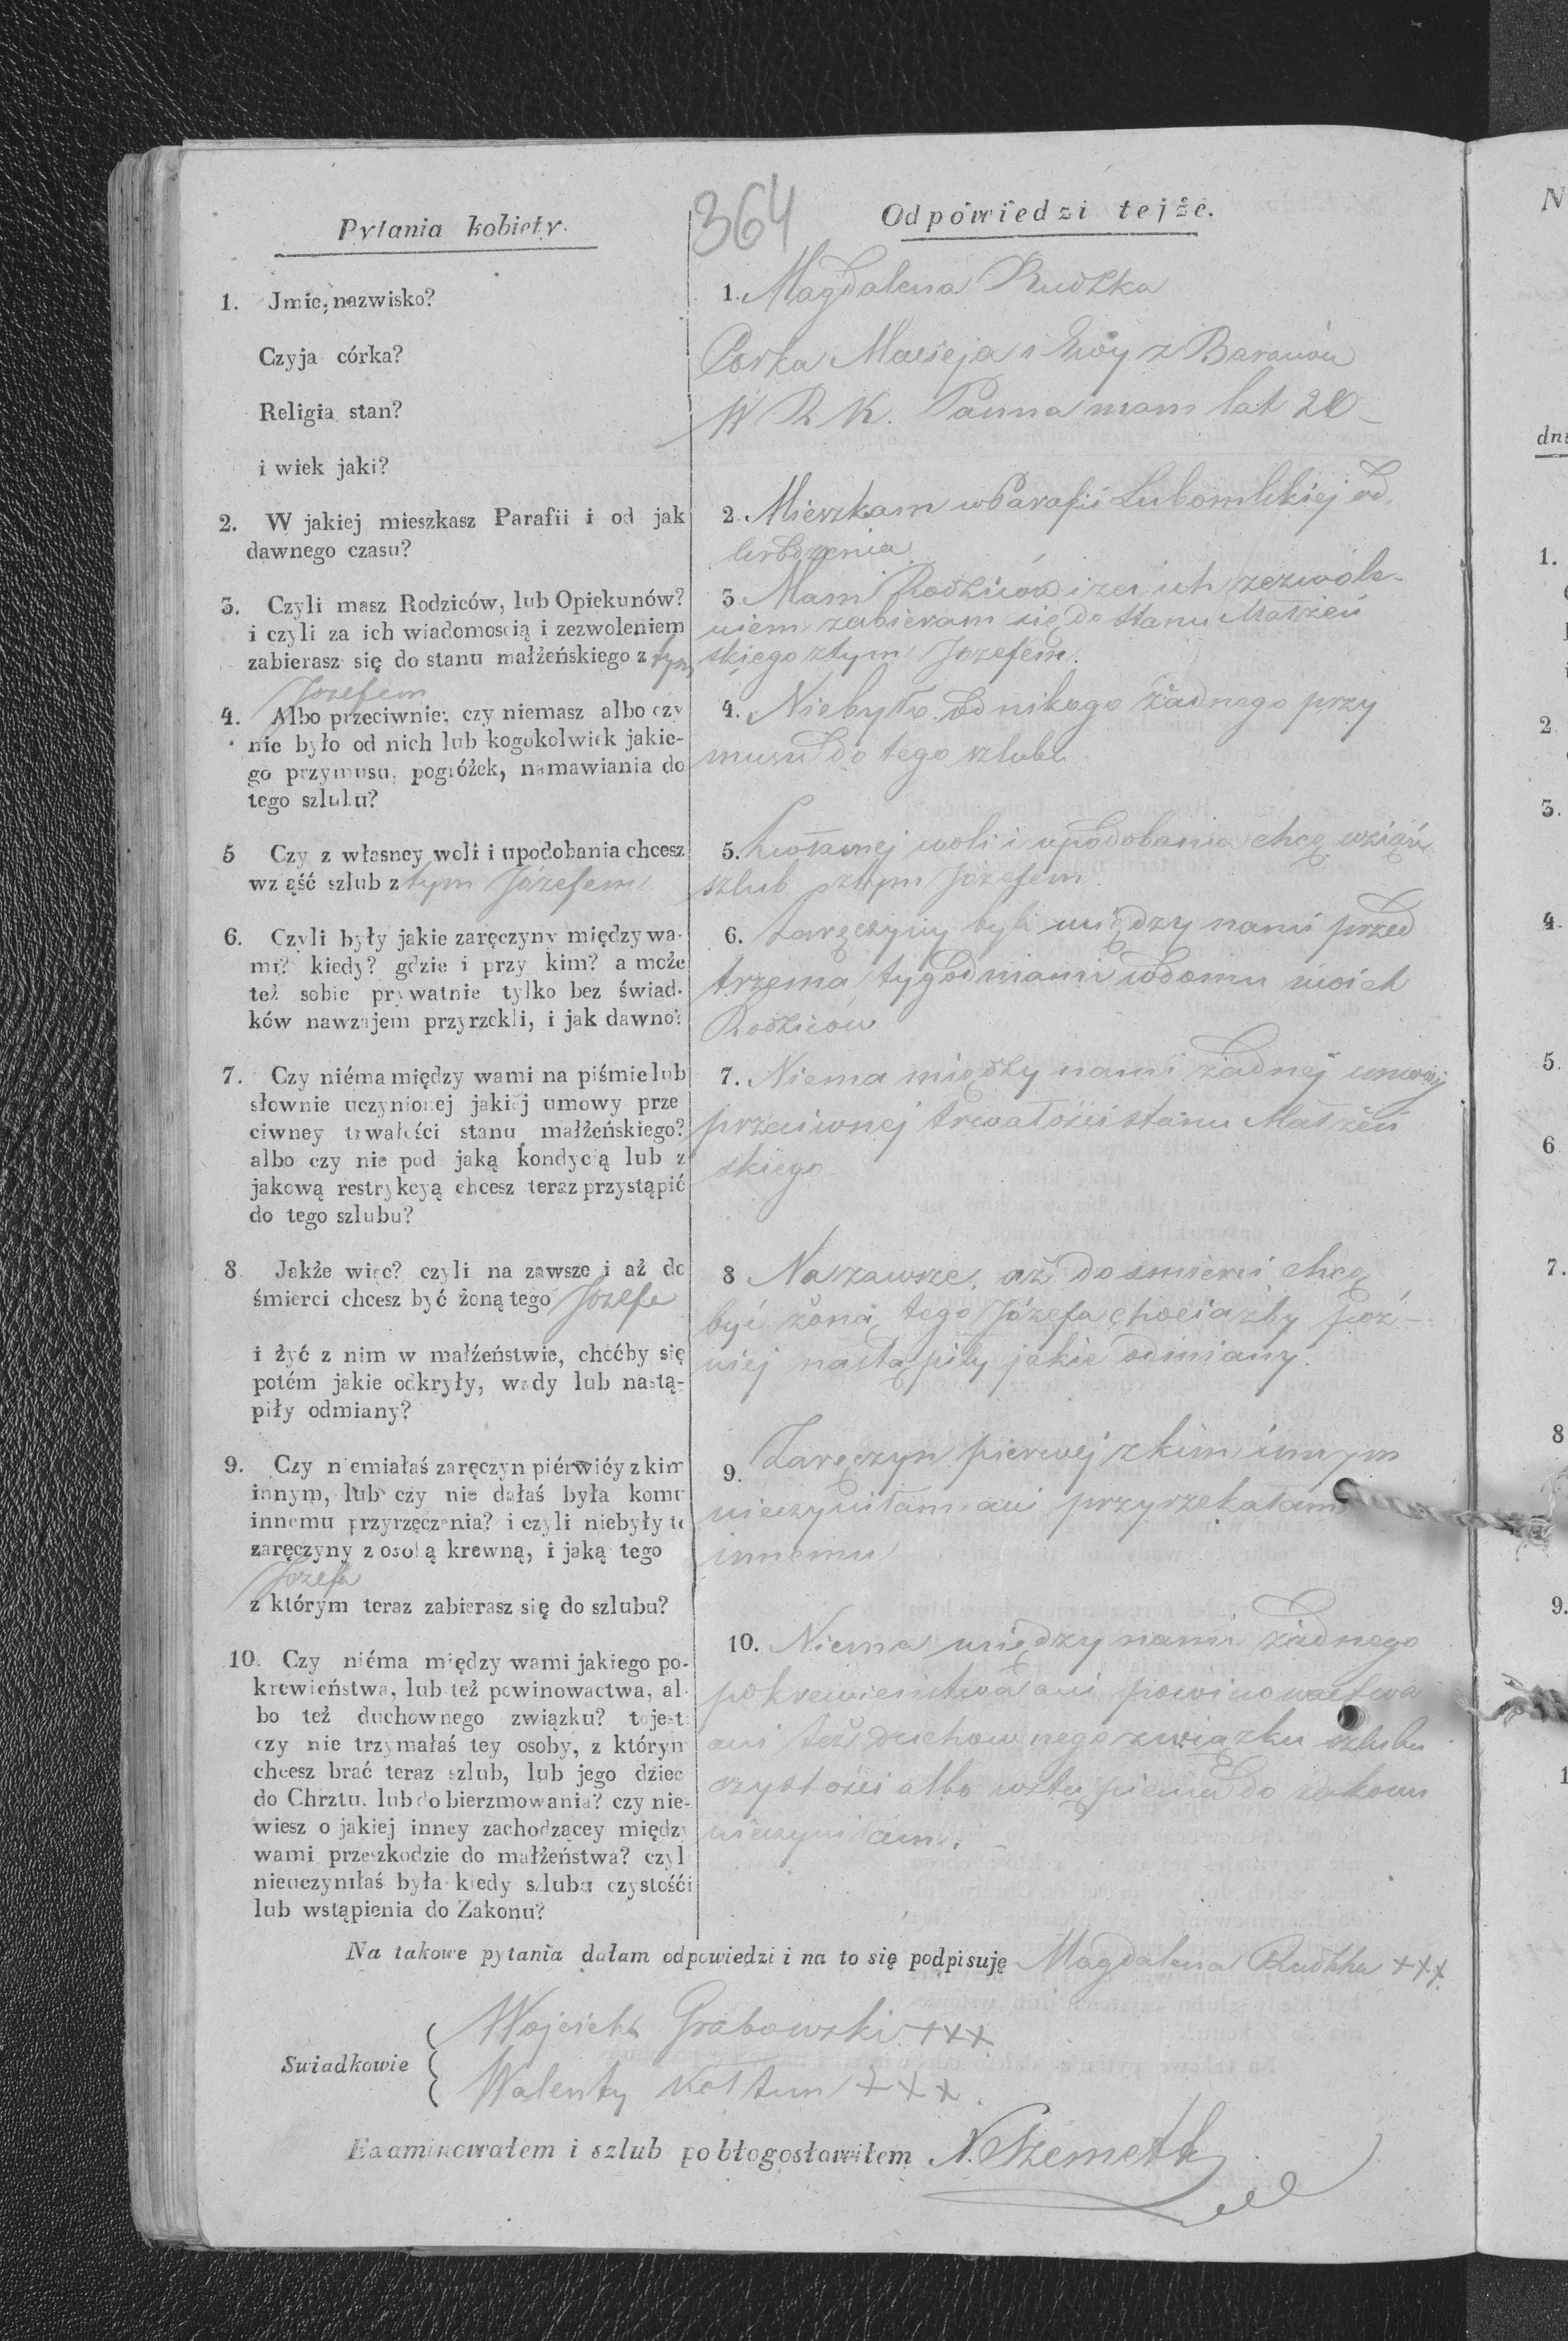 364
Pytania kobiety.
1. Jmie, nazwisko?
Czyja córka?
Religia stan?
i wiek jaki?
2. W jakiej mieszkasz Parafii i od jak
dawnego czasu?
3. Czyli masz Rodziców, lub Opiekunów?
i czyli za ich wiadomoscią i zezwoleniem
zabierasz się do stanu małżeńskiego z tym
Jozefem
4. Albo przeciwnie: czy niemasz albo czy
nie było od nich lub kogokolwiek jakie-
go przymusu, pogróżek, namawiania do
tego szlubu?
5 Czy z własney woli i upodobania chcesz
wziąść szlub z tym Józefem
6. Czyli były jakie zaręczyny między wa-
mi? kiedy? gdzie i przy kim? a może
też sobie prywatnie tylko bez świad-
ków nawzajem przyrzekli, i jak dawno?
7. Czy niéma między wami na piśmie lub
słownie uczynionej jakiéj umowy prze
ciwney trwałości stanu małżeńskiego?
albo czy nie pod jaką kondycią lub z
jakową restrykcyą chcesz teraz przystąpić
do tego szlubu?
8. Jakże więc? czyli na zawsze i aż do
śmierci chcesz być żoną tego Jozefa
i żyć z nim w małżeństwie, choćby się
potém jakie odkryły, wady lub nastą-
piły odmiany?
9. Czy niemiałaś zaręczyn piérwiéy z kim
innym, lub czy nie dałaś była komu
innemu przyrzeczenia? i czyli niebyły te
zaręczyny z osobą krewną, i jaką tego
Jozefa
z którym teraz zabierasz się do szlubu?
10. Czy niéma między wami jakiego po-
krewieństwa, lub też powinowactwa, al-
bo też duchownego związku? tojest:
czy nie trzymałaś tey osoby, z którym
chcesz brać teraz szlub, lub jego dziec
do Chrztu. lub do bierzmowania? czy nie-
wiesz o jakiej inney zachodzącey między
wami przeszkodzie do małżeństwa? czyl
nieuczyniłaś była kiedy szlubu czystośći
lub wstąpienia do Zakonu?
Odpowiedzi tejże.
1. Magdalena Rudzka
Corka Macieja i Ewy z Baranów
W R K. Panna mam lat 20
2. Mieszkam w Parafii Lubomlskiej od
urodzenia
3 Mam Rodziców i za ich zezwole-
niem zabieram się do stanu Małżeń
skiego z tym Jozefem.
4. Niebyło od nikogo żadnego przy
musu do tego szlubu
5. Z własnej woli i upodobania chcę wziąść
szlub z tym Józefem
6. Zaręczyny byli między nami przed
trzema tygodniami w domu moich
Rodziców
7. Niema między nami żadnej umowy
przeciwnej trwałości stanu Małżeń
skiego
8 Na zawsze, aż do śmierci chcę
być żoną tego Józefa chociażby poź-
niej nastąpiły jakie odmiany.
9. Zaręczyn pierwej z kim innym
nieczyniłam ani przyrzekałam
innemu
10. Niema między nami żadnego
pokrewieństwa ani powinowactwa
ani też duchownego związku szlubu
czystości albo wstąpienia do zakonu
nieczyniłam.
Na takowe pytania dałam odpowiedzi i na to się podpisuję Magdalena Rudzka +++
Swiadkowie
Wojciech Grabowski +++
Walenty Kołtun +++
Examinowałem i szlub pobłogosławiłem N. Szemeth
N
dni
1.
2
3.
4.
5.
6
7.
8
9.
1